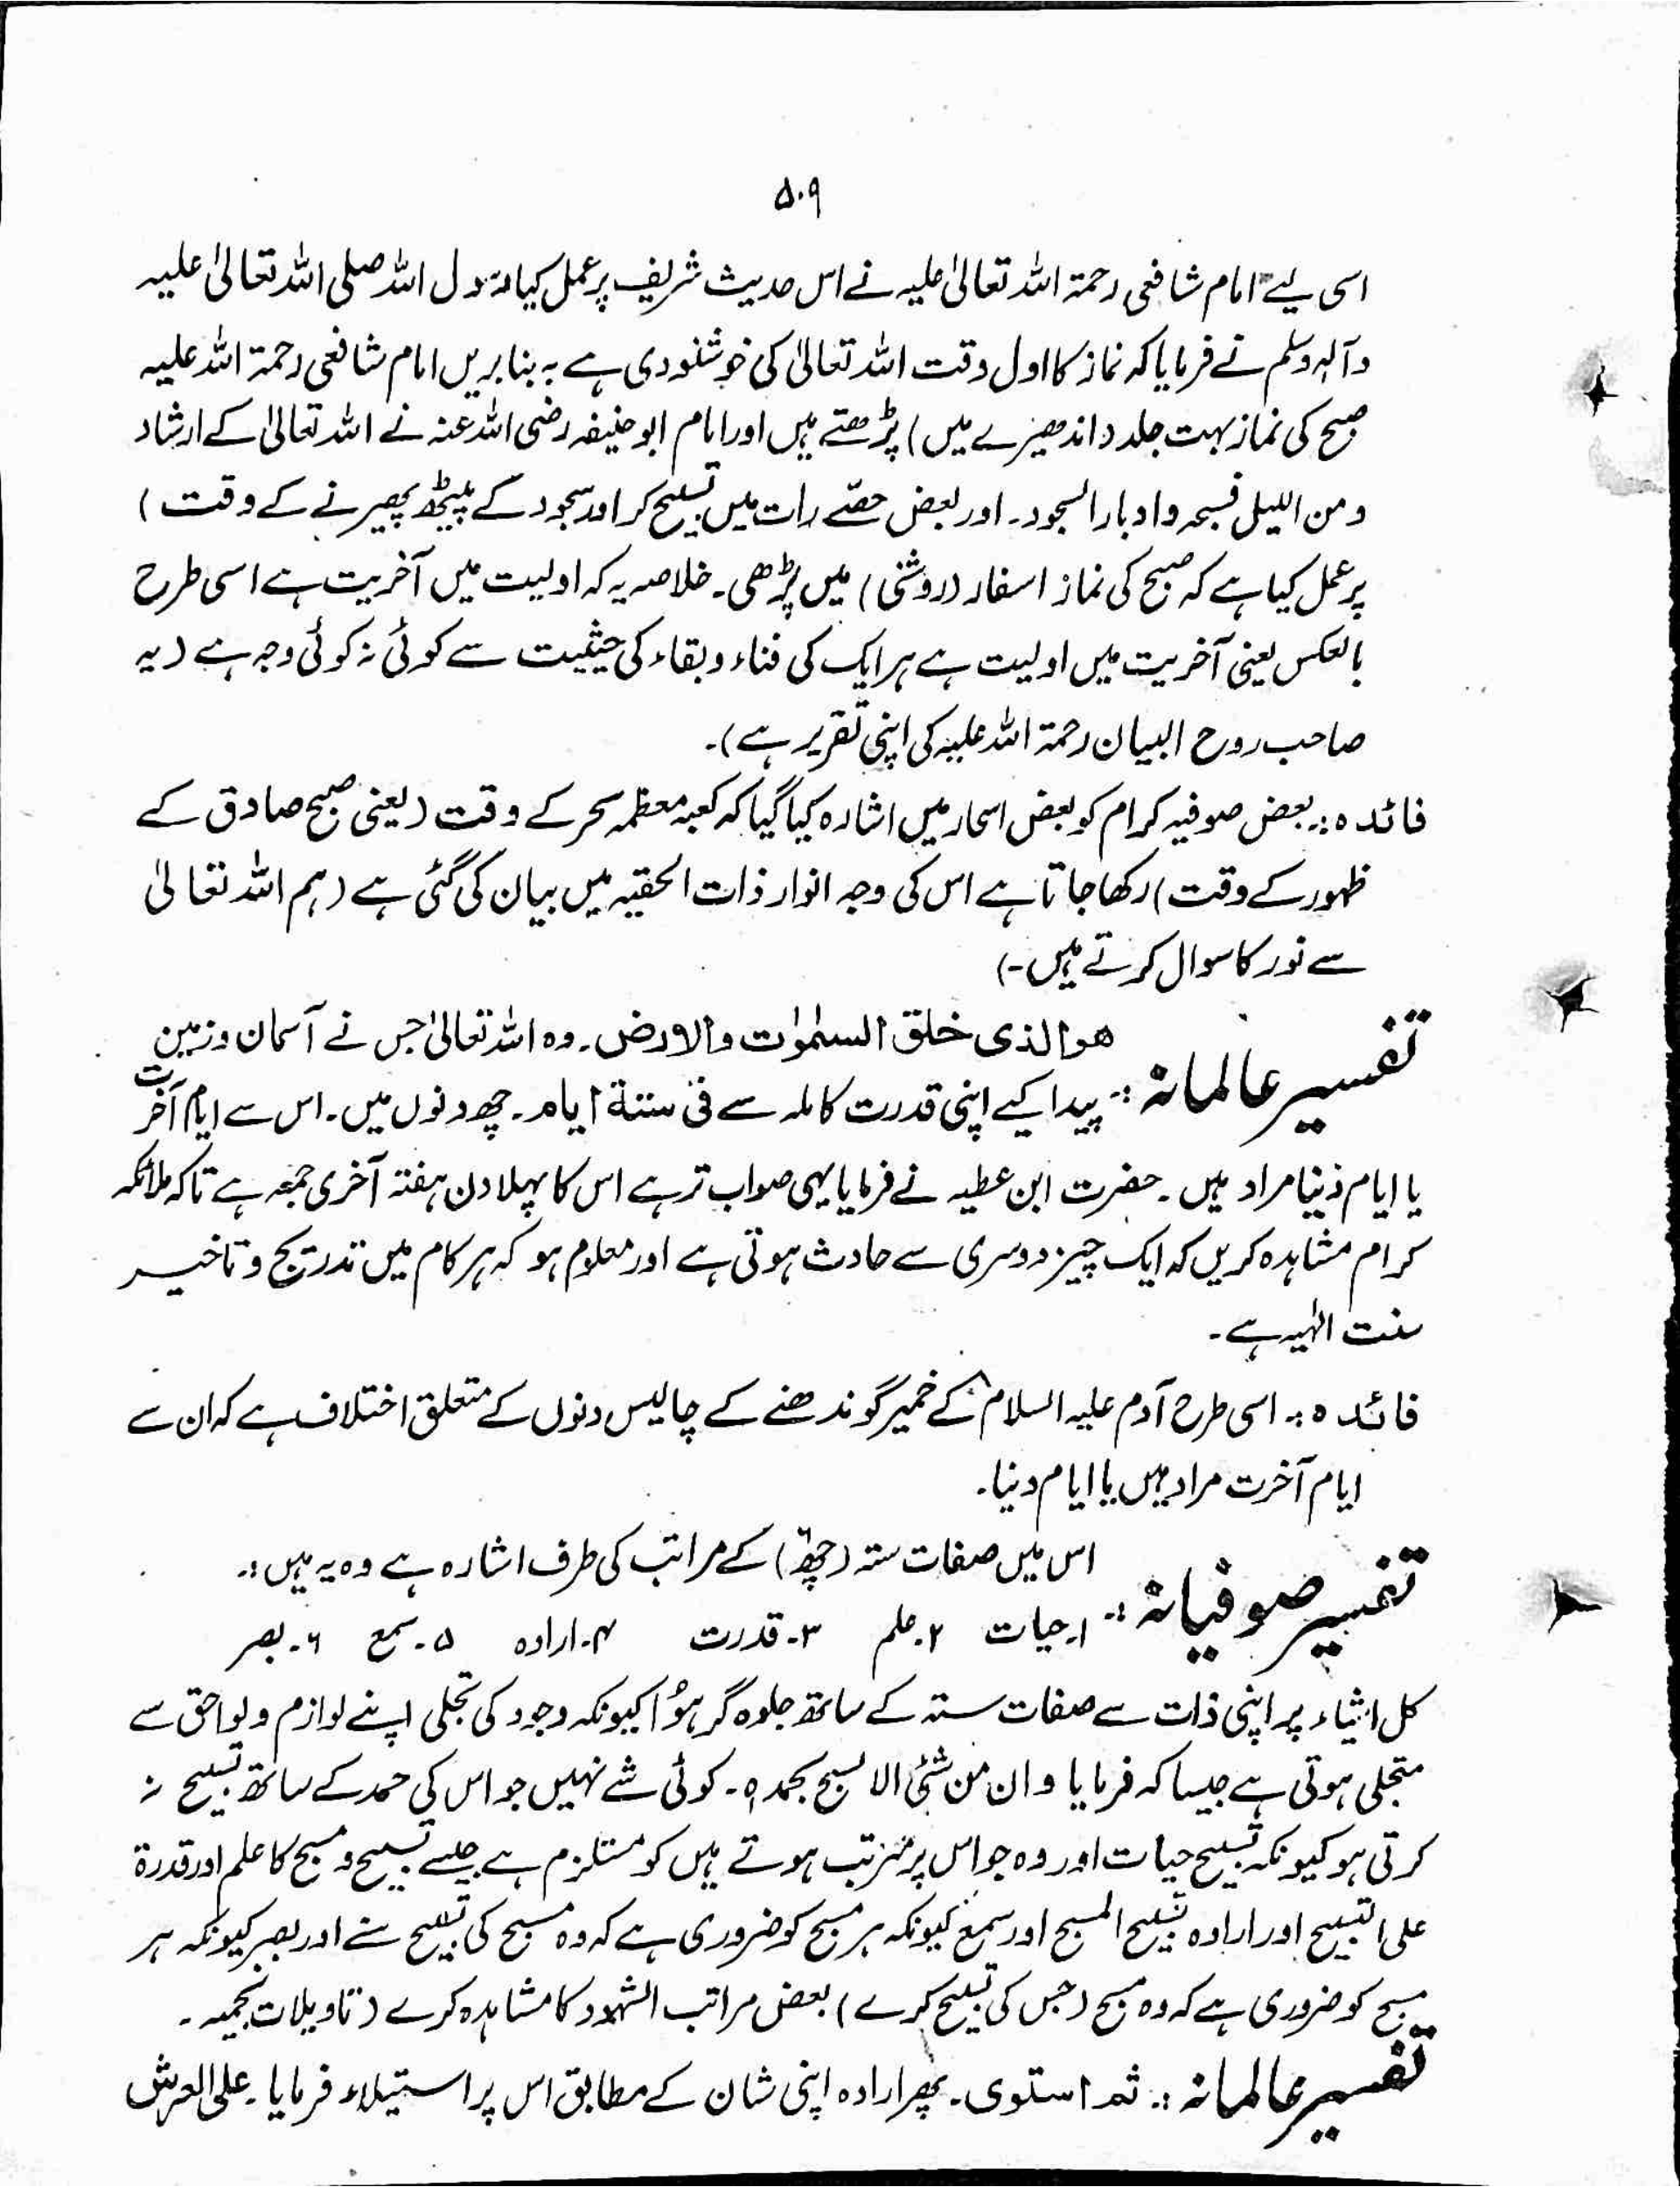 ۵۰۹
اسی لیے امام شافعی رحمۃ اللہ تعالیٰ علیہ نے اس حدیث شریف پر عمل کیا اللہ صلی اللہ تعالیٰ علیہ
وآلہ وسلم نے فرمایا کہ نماز کا اول وقت اللہ تعالیٰ کی خوشنودی ہے بہ بنا بریں امام شافعی رحمۃ اللہ علیہ
صبح کی نماز بہت جلد (اندھیرے میں) پڑھتے ہیں اور امام ابو حنیفہ رضی اللہ عنہ نے اللہ تعالیٰ کے ارشاد
ومن اللیل فسبحہ وادبار السجود۔ اور بعض حصے رات میں تسبیح کر اور سجود کے پیٹھ پھیرنے کے وقت)
پر عمل کیا ہے کہ صبح کی نماز اسفار (روشنی) میں پڑھی۔ خلاصہ یہ کہ اولیت میں آخریت ہے اسی طرح
بالعکس یعنی آخریت میں اولیت ہے ہر ایک کی فناء وبقاء کی حیثیت سے کوئی نہ کوئی وجہ ہے (یہ
صاحب روح البیان رحمۃ اللہ علیہ کی اپنی تقریر ہے)۔
فائدہ :۔ بعض صوفیہ کرام کو بعض اسحار میں اشارہ کیا گیا کہ کعبہ معظمہ سحر کے وقت (یعنی صبح صادق کے
ظہور کے وقت) رکھا جاتا ہے اس کی وجہ انوار ذات الحقیہ میں بیان کی گئی ہے (ہم اللہ تعالیٰ
سے نور کا سوال کرتے ہیں۔)
تفسیر عالمانہ :۔ ھوالذی خلق السمٰوٰت والارض۔ وہ اللہ تعالیٰ جس نے آسمان و زمین
پیدا کیے اپنی قدرت کاملہ سے فی ستۃ ایام۔ چھ دنوں میں۔ اس سے ایام آخرت
یا ایام دنیا مراد ہیں۔ حضرت ابن عطیہ نے فرمایا یہی صواب تر ہے اس کا پہلا دن ہفتہ آخری جمعہ ہے تاکہ ملائکہ
کرام مشاہدہ کریں کہ ایک چیز دوسری سے حادث ہوتی ہے اور معلوم ہو کہ ہر کام میں تدریج و تاخیر
سنت الٰہیہ ہے۔
فائدہ :۔ اسی طرح آدم علیہ السلام کے خمیر گوندھنے کے چالیس دنوں کے متعلق اختلاف ہے کہ ان سے
ایام آخرت مراد ہیں یا ایام دنیا۔
تفسیر صوفیانہ :۔ اس میں صفات ستہ (چھ) کے مراتب کی طرف اشارہ ہے وہ یہ ہیں :۔
۱۔ حیات ۲۔ علم ۳۔ قدرت ۴۔ ارادہ ۵۔ سمع ۶۔ بصر
کل اشیاء پر اپنی ذات سے صفات ستہ کے ساتھ جلوہ گر ہوُا کیونکہ وجود کی تجلی اپنے لوازم و لواحق سے
متجلی ہوتی ہے جیسا کہ فرمایا وان من شیٔ الا یسبح بحمدہٖ۔ کوئی شے نہیں جو اس کی حمد کے ساتھ تسبیح نہ
کرتی ہو کیونکہ تسبیح حیات اور وہ جو اس پر مترتب ہوتے ہیں کو مستلزم ہے جیسے تسبیح و مسبح کا علم اور قدرۃ
علی التسبیح اور ارادہ تسبیح المسبح اور سمع کیونکہ ہر مسبح کو ضروری ہے کہ وہ مسبح کی تسبیح سنے اور بصر کیونکہ ہر
مسبح کو ضروری ہے کہ وہ مسبح (جس کی تسبیح کرے) بعض مراتب الشہود کا مشاہدہ کرے (تاویلات نجمیہ۔
تفسیر عالمانہ :۔ ثم استوی۔ پھر ارادہ اپنی شان کے مطابق اس پر استیلاء فرمایا۔ علی العرش